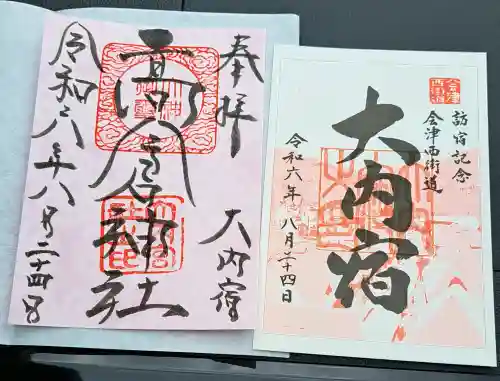 奉拝
大内宿
高倉神社
令和六年八月二十四日
会津
西街道
訪宿記念
会津西街道
大内宿
令和六年 八月二十四日